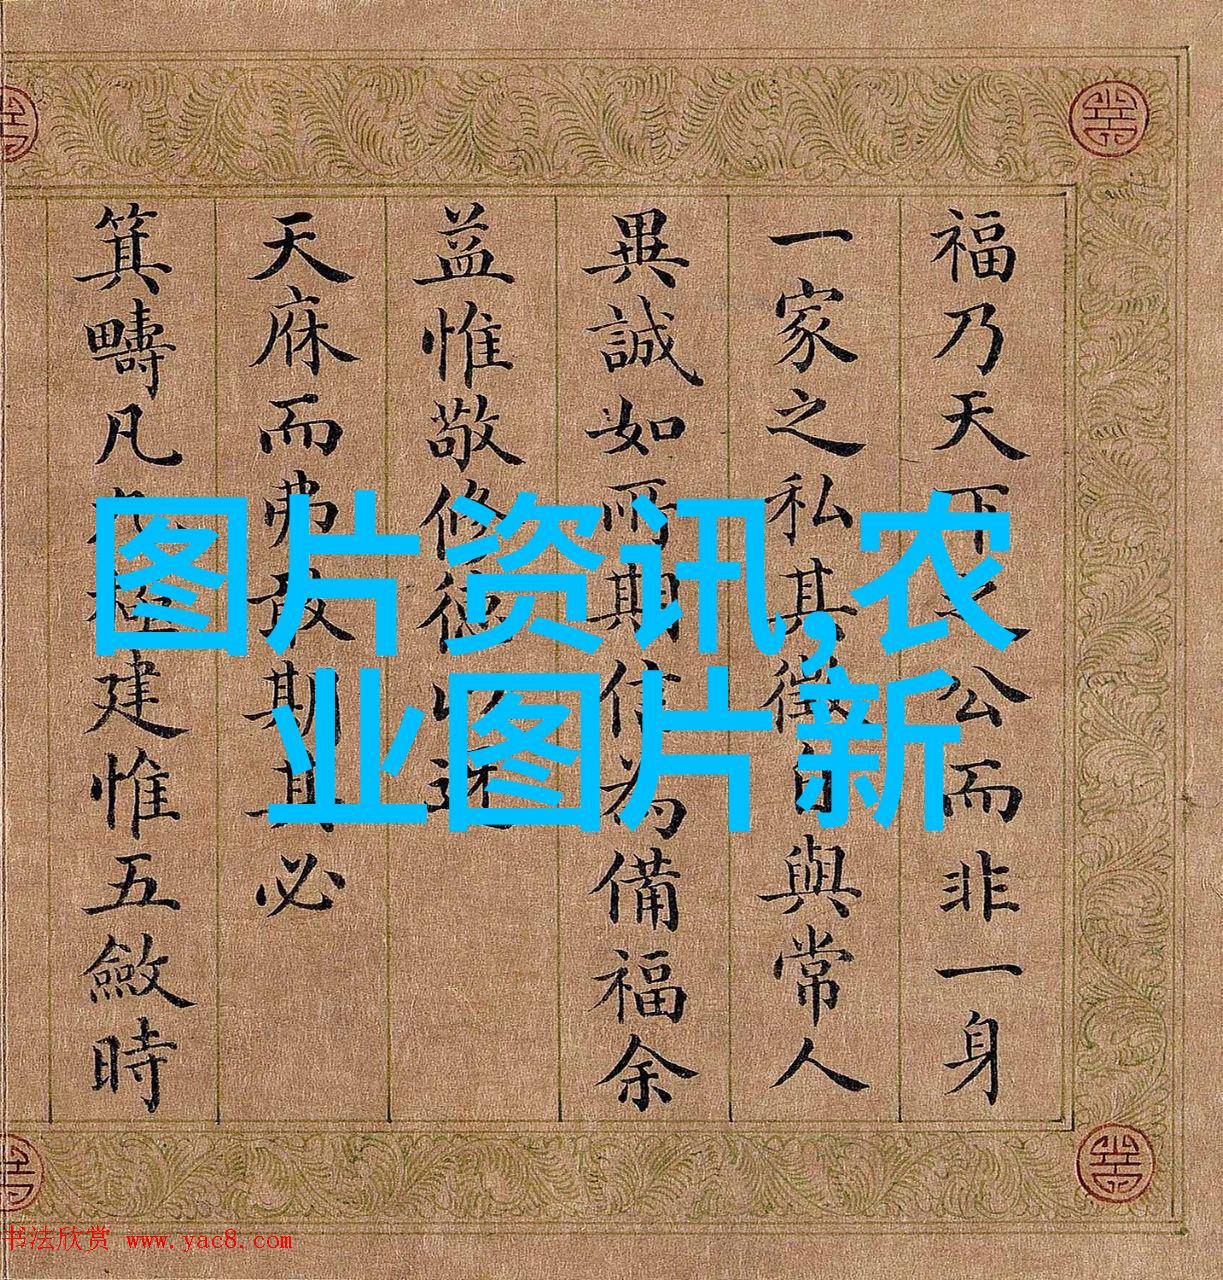 福乃天下之公而非一身
一家之私其徵自與常人
異誠如所期信為備福余
益惟敬修德以迓
天庥而弗敢期其必
箕疇凡九極建惟五斂時
图片资讯,农
业图片新
书法欣赏 www.yac8.com